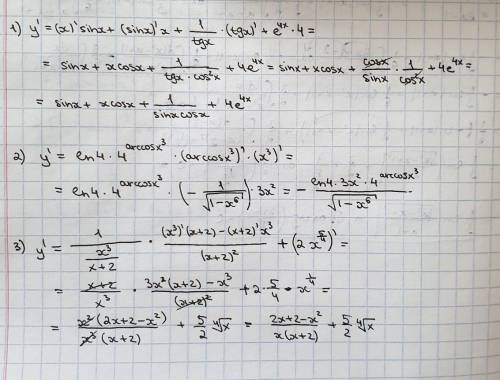 1) y' = (x)' sinx + (sinx)' x + 1/tgx · (tgx)' + e^4x · 4 =
= sinx + xcosx + 1/(tgx · cos²x) + 4e^4x = sinx + xcosx + cosx/sinx · 1/cos²x + 4e^4x =
= sinx + xcosx + 1/(sinxcosx) + 4e^4x
2) y' = ln4 · 4^arccosx³ · (arccosx³)' · (x³)' =
= ln4 · 4^arccosx³ · (- 1/√(1-x⁶)) · 3x² = - (ln4 · 3x² · 4^arccosx³)/√(1-x⁶) .
3) y' = 1/(x³/(x+2)) · ((x³)'(x+2) - (x+2)' x³)/(x+2)² + (2x^5/4)' =
= (x+2)/x³ · (3x²(x+2) - x³)/(x+2)² + 2 · 5/4 · x^1/4 =
= (x²(2x+2-x²))/(x³(x+2)) + 5/2 ⁴√x = (2x+2-x²)/(x(x+2)) + 5/2 ⁴√x